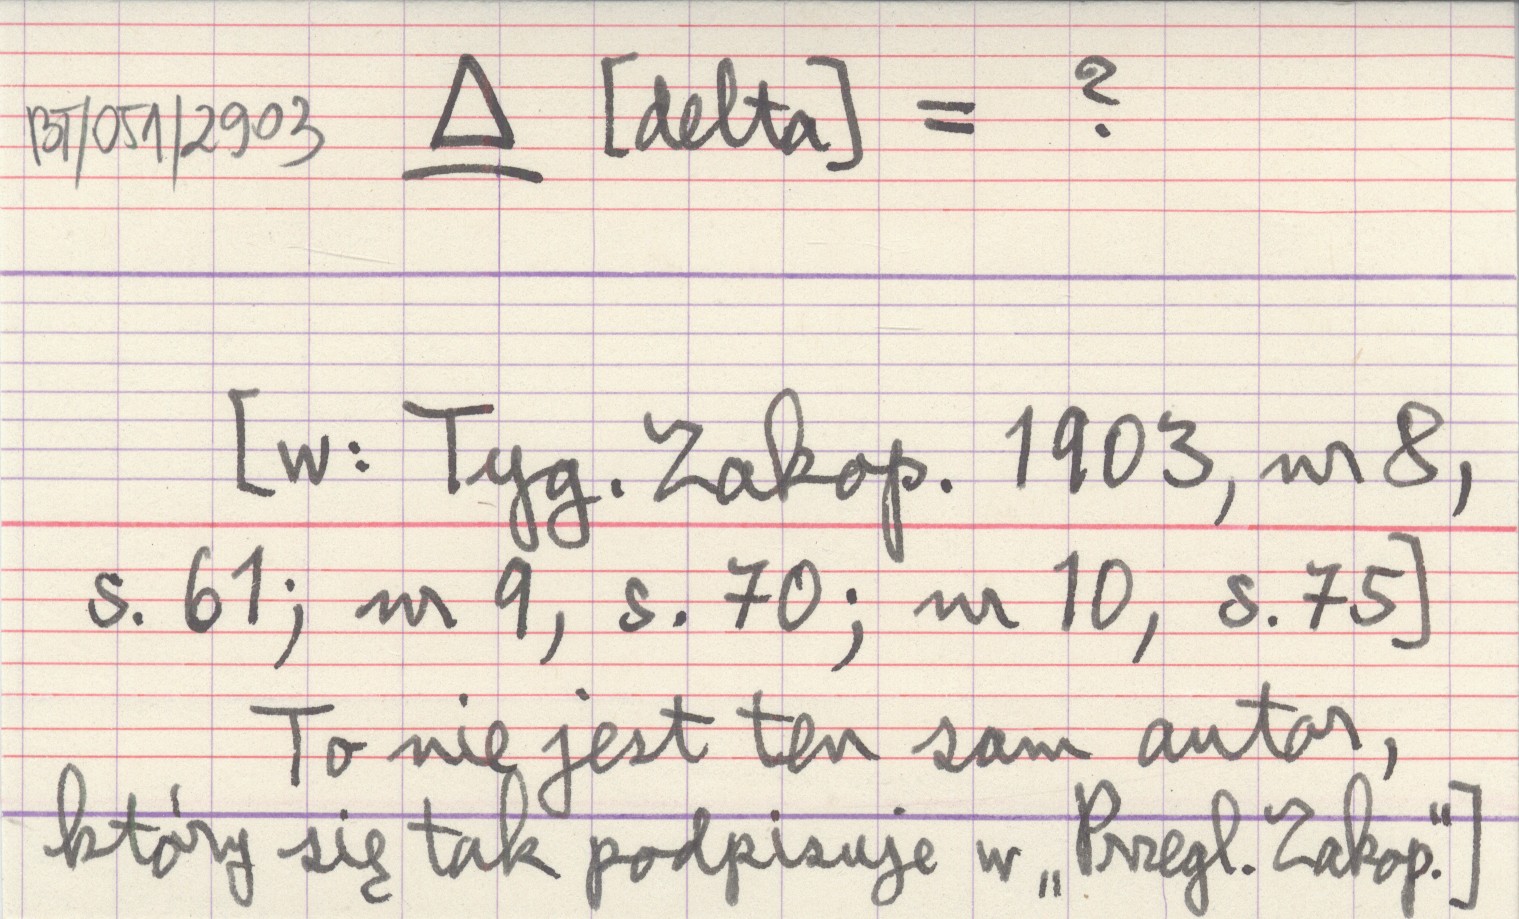 BT/051/2903 Δ [delta] = ?
[w: Tyg. Zakop. 1903, nr 8,
s. 61; nr 9, s. 70; nr 10, s. 75]
To nie jest ten sam autor,
który się tak podpisuje w „Przegl. Zakop."]